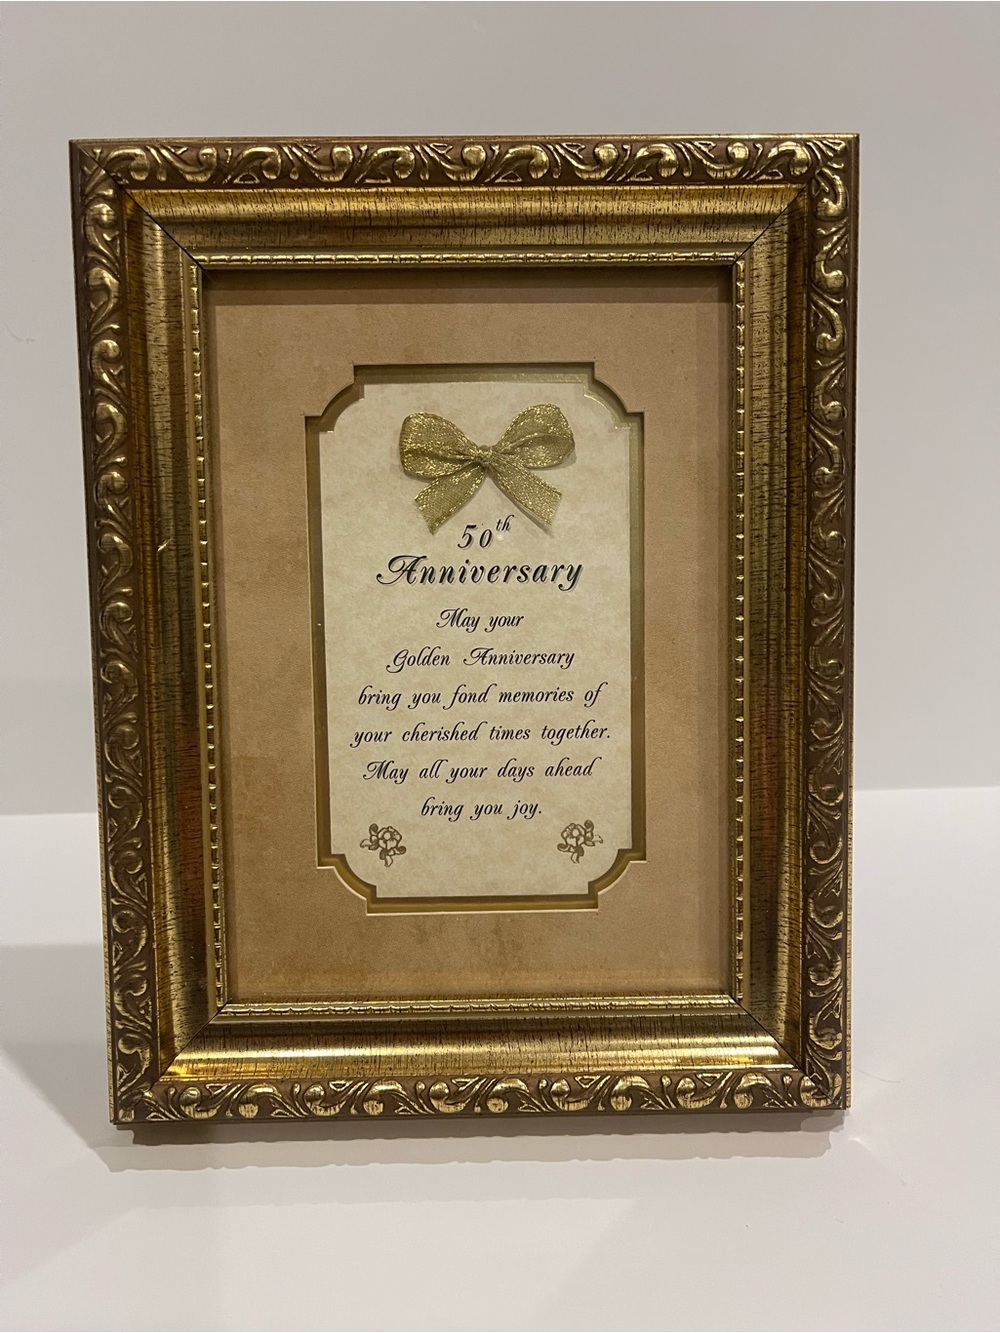 50th
Anniversary
May your
Golden Anniversary
bring you fond memories of
your cherished times together.
May all your days ahead
bring you joy.